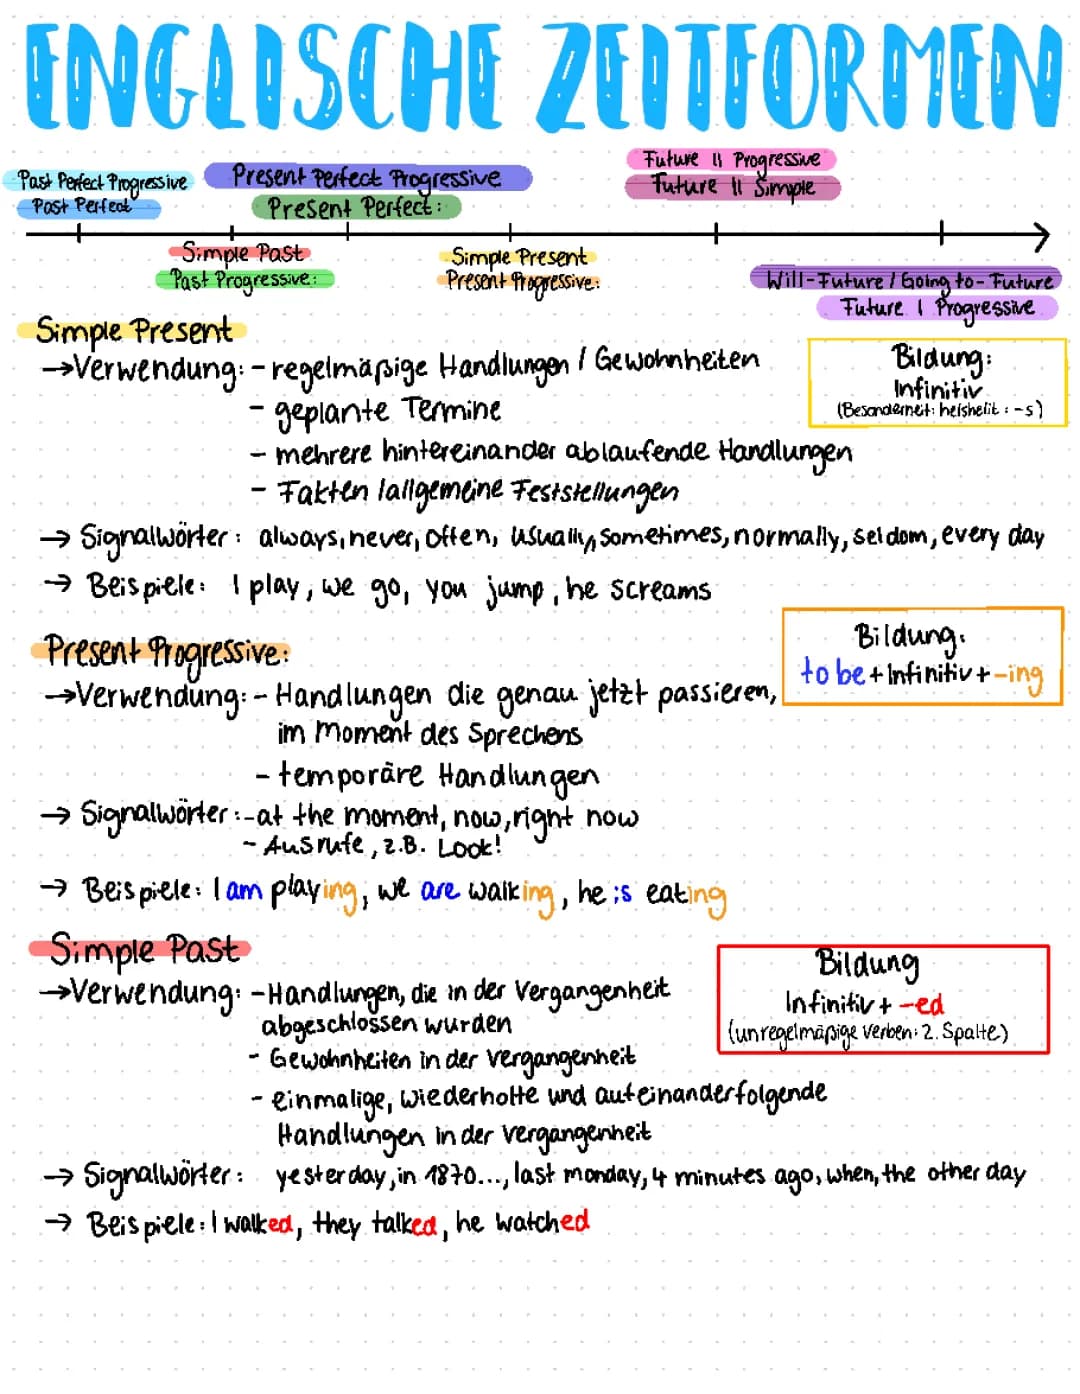 ENGLISCHE ZEITFORMEN
Past Perfect Progressive
Past Perfect
Present Perfect Progressive
Present Perfect:
Future II Progressive
Future II Simple
Simple Past
Past Progressive:
Simple Present
Present Progressive:
Will-Future / Going to-Future
Future I Progressive
Simple Present
→Verwendung: - regelmäßige Handlungen / Gewohnheiten
- geplante Termine
- mehrere hintereinander ablaufende Handlungen
- Fakten /allgemeine Feststellungen
Bildung:
Infinitiv
(Besonderheit: he/she/it : -s)
→ Signalwörter: always, never, often, usually, sometimes, normally, seldom, every day
→ Beispiele: I play, we go, you jump, he screams
Present Progressive:
Bildung:
to be + Infinitiv + -ing
→Verwendung: - Handlungen die genau jetzt passieren,
im Moment des Sprechens
- temporäre Handlungen
→ Signalwörter: - at the moment, now, right now
- Ausrufe, z.B. Look!
→ Beispiele: I am playing, we are walking, he is eating
Simple Past
Bildung
Infinitiv + -ed
(unregelmäßige Verben: 2. Spalte)
→Verwendung: - Handlungen, die in der Vergangenheit
abgeschlossen wurden
- Gewohnheiten in der Vergangenheit
- einmalige, wiederholte und aufeinanderfolgende
Handlungen in der Vergangenheit
→ Signalwörter: yesterday, in 1870..., last monday, 4 minutes ago, when, the other day
→ Beispiele: I walked, they talked, he watched